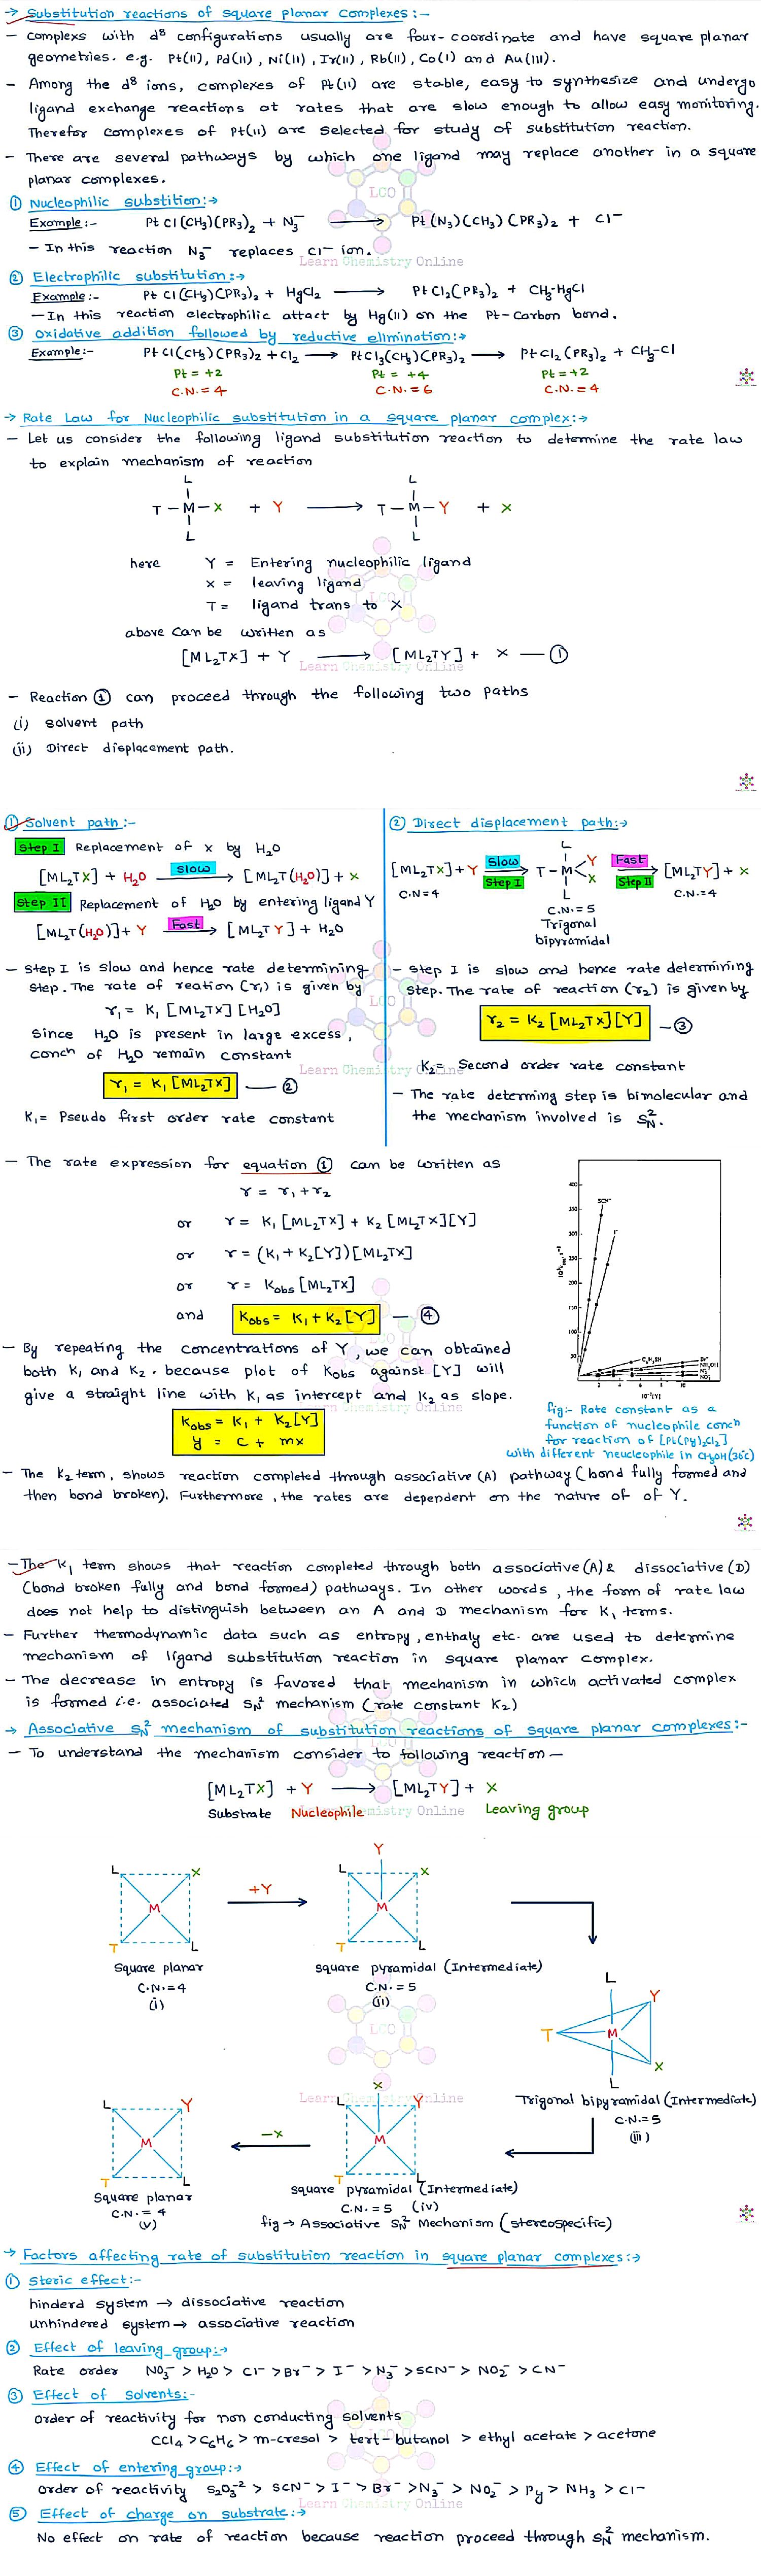 → Substitution reactions of square planar complexes :-
- complexs with d⁸ configurations usually are four-coordinate and have square planar
geometries. e.g. Pt(II), Pd(II), Ni(II), Ir(II), Rb(II), Co(I) and Au(III).
- Among the d⁸ ions, complexes of Pt(II) are stable, easy to synthesize and undergo
ligand exchange reactions at rates that are slow enough to allow easy monitoring.
Therefor complexes of Pt(II) are selected for study of substitution reaction.
- There are several pathways by which one ligand may replace another in a square
planar complexes.
① Nucleophilic substition:→
Example:- Pt Cl(CH₃)(PR₃)₂ + N₃⁻ → Pt(N₃)(CH₃)(PR₃)₂ + Cl⁻
- In this reaction N₃⁻ replaces Cl⁻ ion.
② Electrophilic substitution:→
Example:- Pt Cl(CH₃)(PR₃)₂ + HgCl₂ → PtCl₂(PR₃)₂ + CH₃-HgCl
- In this reaction electrophilic attact by Hg(II) on the Pt-Carbon bond.
③ oxidative addition followed by reductive elimination:→
Example:- PtCl(CH₃)(PR₃)₂ + Cl₂ → PtCl₃(CH₃)(PR₃)₂ → PtCl₂(PR₃)₂ + CH₃-Cl
Pt = +2 Pt = +4 Pt = +2
C.N. = 4 C.N. = 6 C.N. = 4
→ Rate Law for Nucleophilic substitution in a square planar complex:→
- Let us consider the following ligand substitution reaction to determine the rate law
to explain mechanism of reaction
L L
T - M - X + Y → T - M - Y + X
L L
here Y = Entering nucleophilic ligand
X = leaving ligand
T = ligand trans to X
above can be written as
[ML₂TX] + Y → [ML₂TY] + X — ①
- Reaction ① can proceed through the following two paths
(i) solvent path
(ii) Direct displacement path.
① Solvent path:-
Step I Replacement of X by H₂O
[ML₂TX] + H₂O slow → [ML₂T(H₂O)] + X
Step II Replacement of H₂O by entering ligand Y
[ML₂T(H₂O)] + Y Fast → [ML₂TY] + H₂O
- Step I is slow and hence rate determining
step. The rate of reation (r₁) is given by
r₁ = K₁ [ML₂TX][H₂O]
Since H₂O is present in large excess,
conch of H₂O remain constant
r₁ = K₁ [ML₂TX] — ②
K₁ = Pseudo first order rate constant
② Direct displacement path:→
[ML₂TX] + Y Slow Step I → T - M L L Y X Fast Step II → [ML₂TY] + X
C.N = 4 C.N. = 5 C.N. = 4
Trigonal
bipyramidal
- Step I is slow and hence rate determining
step. The rate of reaction (r₂) is given by
r₂ = K₂ [ML₂TX][Y] — ③
K₂ = Second order rate constant
- The rate determing step is bimolecular and
the mechanism involved is SN².
- The rate expression for equation ① can be written as
r = r₁ + r₂
or r = K₁ [ML₂TX] + K₂ [ML₂TX][Y]
or r = (K₁ + K₂[Y]) [ML₂TX]
or r = Kobs [ML₂TX]
and Kobs = K₁ + K₂ [Y] — ④
- By repeating the concentrations of Y, we can obtained
both K₁ and K₂. because plot of Kobs against [Y] will
give a straight line with K₁ as intercept and K₂ as slope.
Kobs = K₁ + K₂[Y]
y = c + mx
400
350
300
250
200
150
100
50
SCN⁻
I⁻
Br⁻
NH₂OH
N₃⁻
NO₂⁻
2 4 6 8 10
fig:- Rate constant as a
function of nucleophile conch
for reaction of [Pt(Py)₂Cl₂]
with different neucleophile in CH₃OH (30°c)
- The K₂ term, shows reaction completed through associative (A) pathway (bond fully formed and
then bond broken). Furthermore, the rates are dependent on the nature of of Y.
- The K₁ term shows that reaction completed through both associative (A) & dissociative (D)
(bond broken fully and bond formed) pathways. In other words, the form of rate law
does not help to distinguish between an A and D mechanism for K₁ terms.
- Further thermodynamic data such as entropy, enthaly etc. are used to determine
mechanism of ligand substitution reaction in square planar complex.
- The decrease in entropy is favored that mechanism in which activated complex
is formed i.e. associated SN² mechanism (rate constant K₂)
→ Associative SN² mechanism of substitution reactions of square planar complexes:-
- To understand the mechanism consider to following reaction -
[ML₂TX] + Y → [ML₂TY] + X
Substrate Nucleophile Leaving group
L X T L M
+Y
Y L X T L M
Square planar
C.N. = 4
(i)
square pyramidal (Intermediate)
C.N. = 5
(ii)
L Y T M X L
Trigonal bipyramidal (Intermediate)
C.N. = 5
(iii)
X L Y T L M
square pyramidal (Intermediate)
C.N. = 5 (iv)
-X
L Y T L M
Square planar
C.N. = 4
(v)
fig → Associative SN² Mechanism (stereospecific)
→ Factors affecting rate of substitution reaction in square planar complexes:→
① Steric effect:-
hinderd system → dissociative reaction
unhindered system → associative reaction
② Effect of leaving group:→
Rate order NO₃⁻ > H₂O > Cl⁻ > Br⁻ > I⁻ > N₃⁻ > SCN⁻ > NO₂⁻ > CN⁻
③ Effect of solvents:-
order of reactivity for non conducting solvents
CCl₄ > C₆H₆ > m-cresol > tert-butanol > ethyl acetate > acetone
④ Effect of entering group:→
order of reactivity S₂O₃⁻² > SCN⁻ > I⁻ > Br⁻ > N₃⁻ > NO₂⁻ > Py > NH₃ > Cl⁻
⑤ Effect of charge on substrate:→
No effect on rate of reaction because reaction proceed through SN² mechanism.
LCO
Learn Chemistry Online